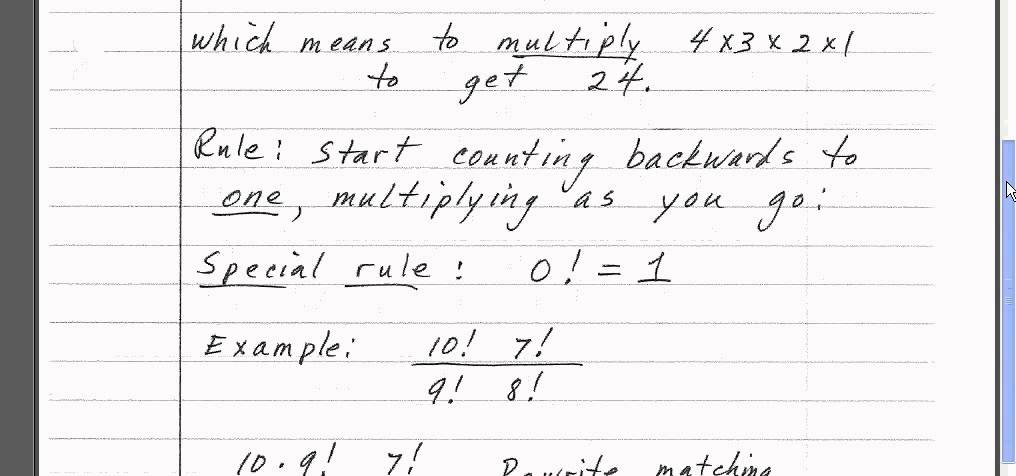 which means to multiply 4 x 3 x 2 x 1
to get 24.
Rule: Start counting backwards to
one, multiplying as you go:
Special rule: 0! = 1
Example: 10! 7!
9! 8!
10 · 9! 7! Rewrite matching